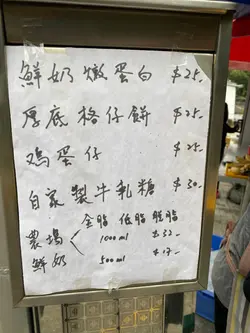 鮮奶燉蛋白 $25-
厚底格仔餅 $25-
鸡蛋仔 $25
自家製牛軋糖 $30-
全脂 低脂 脱脂
農場 1000ml $32-
鮮奶 500ml $17-